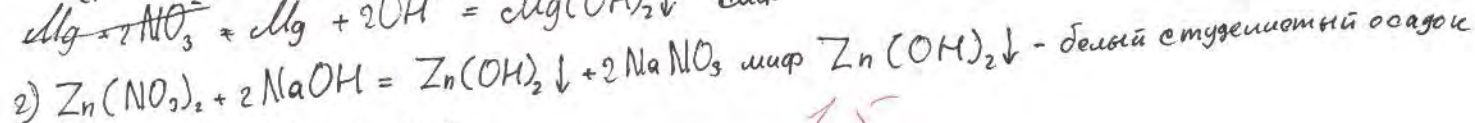 Mg + 2OH = Mg(OH)₂↓
2) Zn(NO₃)₂ + 2NaOH = Zn(OH)₂↓ + 2NaNO₃ Zn(OH)₂↓ - белый студенистый осадок